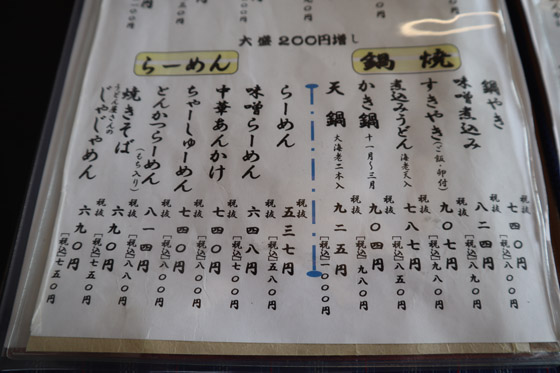 大盛 200円増し
鍋焼
鍋やき 税抜 七四〇円 [税込]八〇〇円
味噌煮込み 税抜 八二四円 [税込]八九〇円
すきやき(ご飯・卵付) 税抜 九〇七円 [税込]九八〇円
煮込みうどん 海老天入 税抜 七八七円 [税込]八五〇円
かき鍋 十一月〜三月 税抜 九〇四円 [税込]九八〇円
天鍋 大海老二本入 税抜 九二五円 [税込]一〇〇〇円
らーめん
らーめん 税抜 五三七円 [税込]五八〇円
味噌らーめん 税抜 六四八円 [税込]七〇〇円
中華あんかけ 税抜 七四〇円 [税込]八〇〇円
ちゃーしゅーめん 税抜 七四〇円 [税込]八〇〇円
とんかつらーめん 税抜 八一四円 [税込]八八〇円
焼きそば(もち入り) 税抜 六九〇円 [税込]七五〇円
うどん屋さんのじゃじゃめん 税抜 六九〇円 [税込]七五〇円